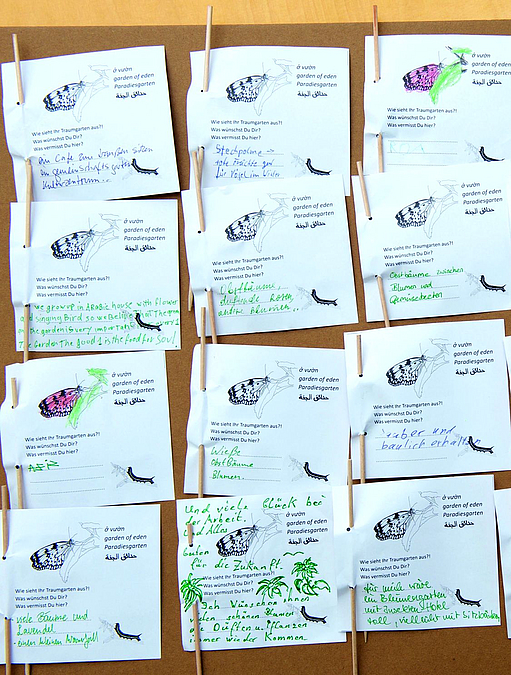 å vườn
garden of eden
Paradiesgarten
حدائق الجنة
Wie sieht Ihr Traumgarten aus?!
Was wünschst Du Dir?
Was vermisst Du hier?
ein Cafe zum
ein gemeinschafts gutes
Kulturzentrum...
å vườn
garden of eden
Paradiesgarten
حدائق الجنة
Wie sieht Ihr Traumgarten aus?!
Was wünschst Du Dir?
Was vermisst Du hier?
Stechpalme →
rote Früchte gut
für Vögel im Winter
å vườn
garden of eden
Paradiesgarten
حدائق الجنة
Wie sieht Ihr Traumgarten aus?!
Was wünschst Du Dir?
Was vermisst Du hier?
å vườn
garden of eden
Paradiesgarten
حدائق الجنة
Wie sieht Ihr Traumgarten aus?!
Was wünschst Du Dir?
Was vermisst Du hier?
we grow up in ARABic house with flower
and singing Bird so we Believe that the
on the garden is very important
The Garden The good is the food for Soul
å vườn
garden of eden
Paradiesgarten
حدائق الجنة
Wie sieht Ihr Traumgarten aus?!
Was wünschst Du Dir?
Was vermisst Du hier?
Obstbäume,
duftende Rosen,
å vườn
garden of eden
Paradiesgarten
حدائق الجنة
Wie sieht Ihr Traumgarten aus?!
Was wünschst Du Dir?
Was vermisst Du hier?
Obstbäume zwischen
Blumen und
Gemüsebeeten
å vườn
garden of eden
Paradiesgarten
حدائق الجنة
Wie sieht Ihr Traumgarten aus?!
Was wünschst Du Dir?
Was vermisst Du hier?
å vườn
garden of eden
Paradiesgarten
حدائق الجنة
Wie sieht Ihr Traumgarten aus?!
Was wünschst Du Dir?
Was vermisst Du hier?
Wieße
obstBäume
Blumen.
å vườn
garden of eden
Paradiesgarten
حدائق الجنة
Wie sieht Ihr Traumgarten aus?!
Was wünschst Du Dir?
Was vermisst Du hier?
sauber und
baulich erhalten
å vườn
garden of eden
Paradiesgarten
حدائق الجنة
Wie sieht Ihr Traumgarten aus?!
Was wünschst Du Dir?
Was vermisst Du hier?
viele Bäume und
Lavendel
einen kleinen Wasserfall
Und viele Glück bei
der Arbeit.
å vườn
garden of eden
Paradiesgarten
حدائق الجنة
Und alles
guten
für die Zukunft
Wie sieht Ihr Traumgarten aus?!
Was wünschst Du Dir?
Was vermisst Du hier?
Ich Wünschen ihnen
vielen schönen Blumen
die Düften u. Pflanzen
immer wieder Kommen.
å vườn
garden of eden
Paradiesgarten
حدائق الجنة
Wie sieht Ihr Traumgarten aus?!
Was wünschst Du Dir?
Was vermisst Du hier?
für mich wäre
ein Blumengarten
mit
toll, vielleicht mit Sitzbänken